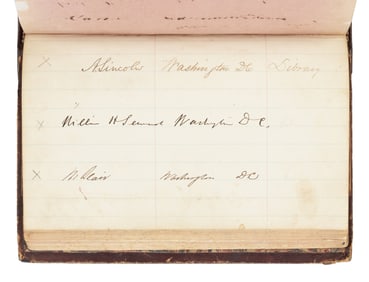 x A Lincoln Washington DC Library
x William H Seward Washington D.C.
x M Blair Washington DC